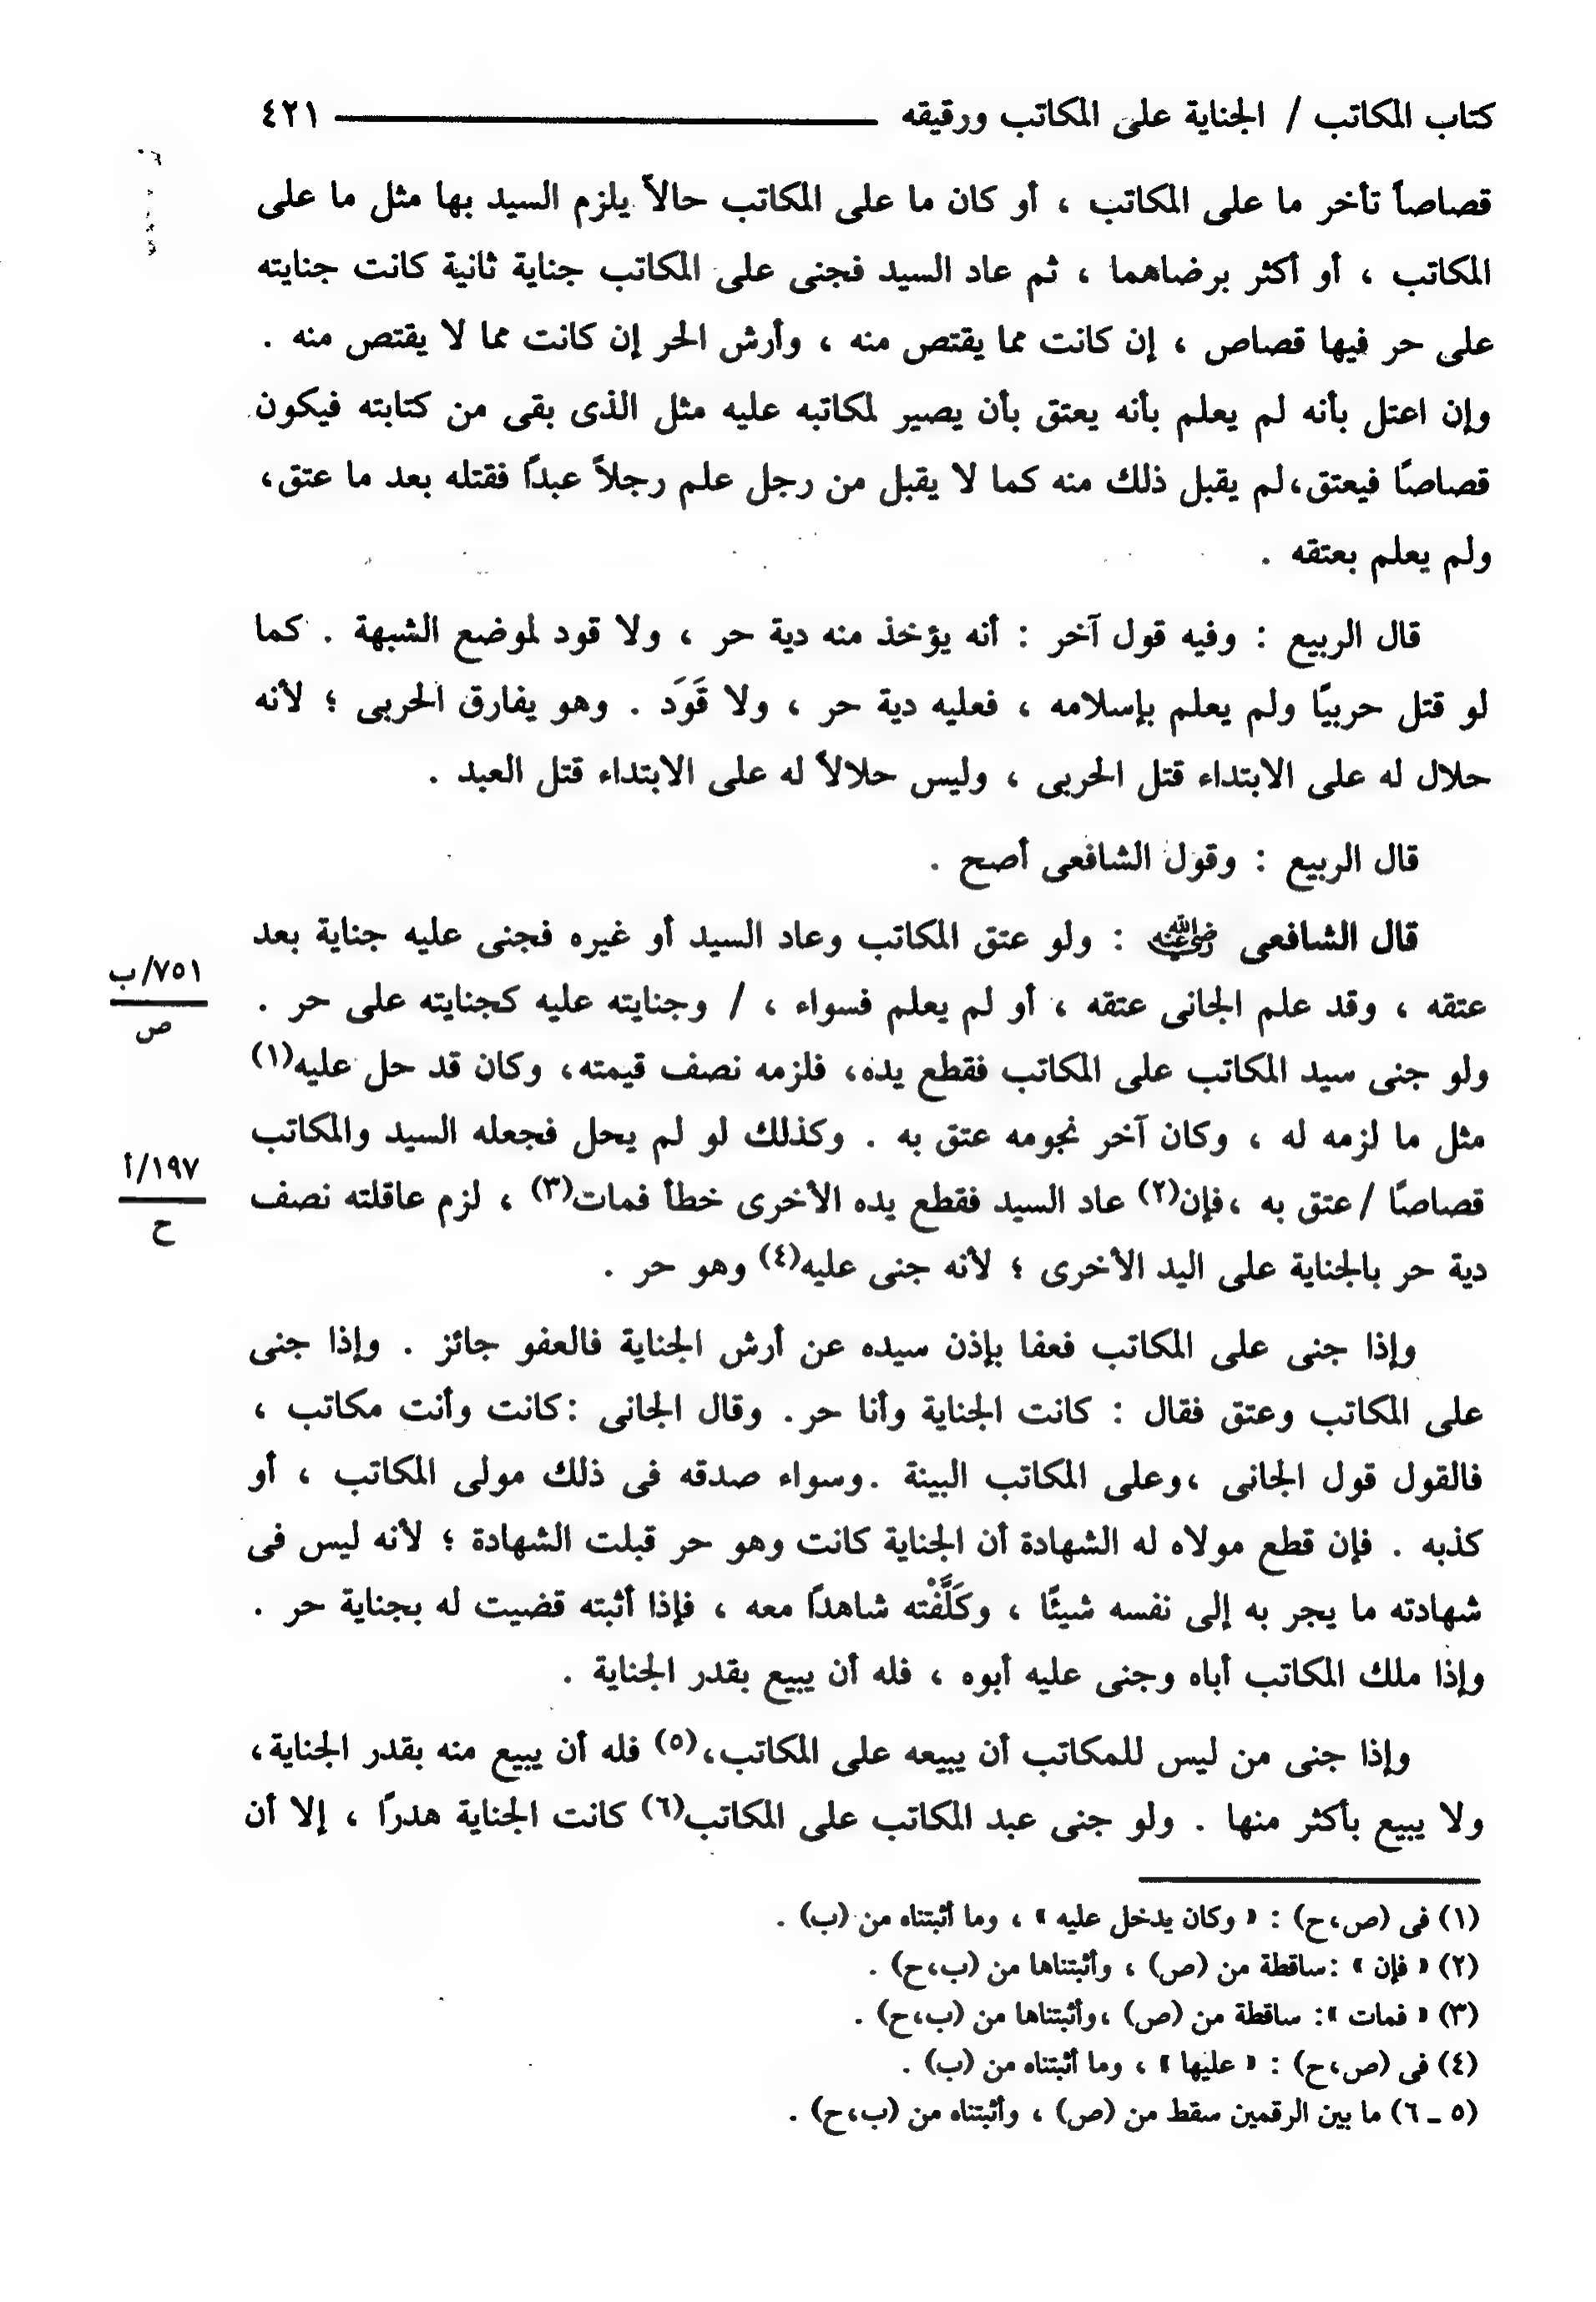 كتاب المكاتب / الجناية على المكاتب ورقيقه ٤٢١
قصاصاً تأخر ما على المكاتب ، أو كان ما على المكاتب حالاً يلزم السيد بها مثل ما على
المكاتب ، أو أكثر برضاهما ، ثم عاد السيد فجنى على المكاتب جناية ثانية كانت جنايته
على حر فيها قصاص ، إن كانت مما يقتص منه ، وأرش الحر إن كانت مما لا يقتص منه .
وإن اعتل بأنه لم يعلم بأنه يعتق بأن يصير لمكاتبه عليه مثل الذى بقى من كتابته فيكون
قصاصًا فيعتق،لم يقبل ذلك منه كما لا يقبل من رجل علم رجلاً عبدًا فقتله بعد ما عتق،
ولم يعلم بعتقه .
قال الربيع : وفيه قول آخر : أنه يؤخذ منه دية حر ، ولا قود لموضع الشبهة . كما
لو قتل حربيًا ولم يعلم بإسلامه ، فعليه دية حر ، ولا قَوَد . وهو يفارق الحربى ؛ لأنه
حلال له على الابتداء قتل الحربى ، وليس حلالاً له على الابتداء قتل العبد .
قال الربيع : وقول الشافعى أصح .
قال الشافعى رضي الله عنه : ولو عتق المكاتب وعاد السيد أو غيره فجنى عليه جناية بعد
٧٥١/ب
عتقه ، وقد علم الجانى عتقه ، أو لم يعلم فسواء ، / وجنايته عليه كجنايته على حر .
ص
ولو جنى سيد المكاتب على المكاتب فقطع يده، فلزمه نصف قيمته، وكان قد حل عليه(١)
مثل ما لزمه له ، وكان آخر نجومه عتق به . وكذلك لو لم يحل فجعله السيد والمكاتب
١٩٧/أ
قصاصًا /عتق به ،فإن(٢) عاد السيد فقطع يده الأخرى خطأ فمات(٣) ، لزم عاقلته نصف
ح
دية حر بالجناية على اليد الأخرى ؛ لأنه جنى عليه(٤) وهو حر .
وإذا جنى على المكاتب فعفا بإذن سيده عن أرش الجناية فالعفو جائز . وإذا جنى
على المكاتب وعتق فقال : كانت الجناية وأنا حر. وقال الجانى :كانت وأنت مكاتب ،
فالقول قول الجانى ،وعلى المكاتب البينة .وسواء صدقه فى ذلك مولى المكاتب ، أو
كذبه . فإن قطع مولاه له الشهادة أن الجناية كانت وهو حر قبلت الشهادة ؛ لأنه ليس فى
شهادته ما يجر به إلى نفسه شيئًا ، وكَلَّفْته شاهدًا معه ، فإذا أثبته قضيت له بجناية حر .
وإذا ملك المكاتب أباه وجنى عليه أبوه ، فله أن يبيع بقدر الجناية .
وإذا جنى من ليس للمكاتب أن يبيعه على المكاتب،(٥) فله أن يبيع منه بقدر الجناية،
ولا يبيع بأكثر منها . ولو جنى عبد المكاتب على المكاتب(٦) كانت الجناية هدرًا ، إلا أن
(١) فى (ص،ح) : « وكان يدخل عليه » ، وما أثبتناه من (ب) .
(٢) « فإن » :ساقطة من (ص) ، وأثبتناها من (ب،ح) .
(٣) « فمات »: ساقطة من (ص) ،وأثبتناها من (ب،ح) .
(٤) فى (ص،ح) : « عليها » ، وما أثبتناه من (ب) .
(٥ ـ ٦) ما بين الرقمين سقط من (ص) ، وأثبتناه من (ب،ح) .